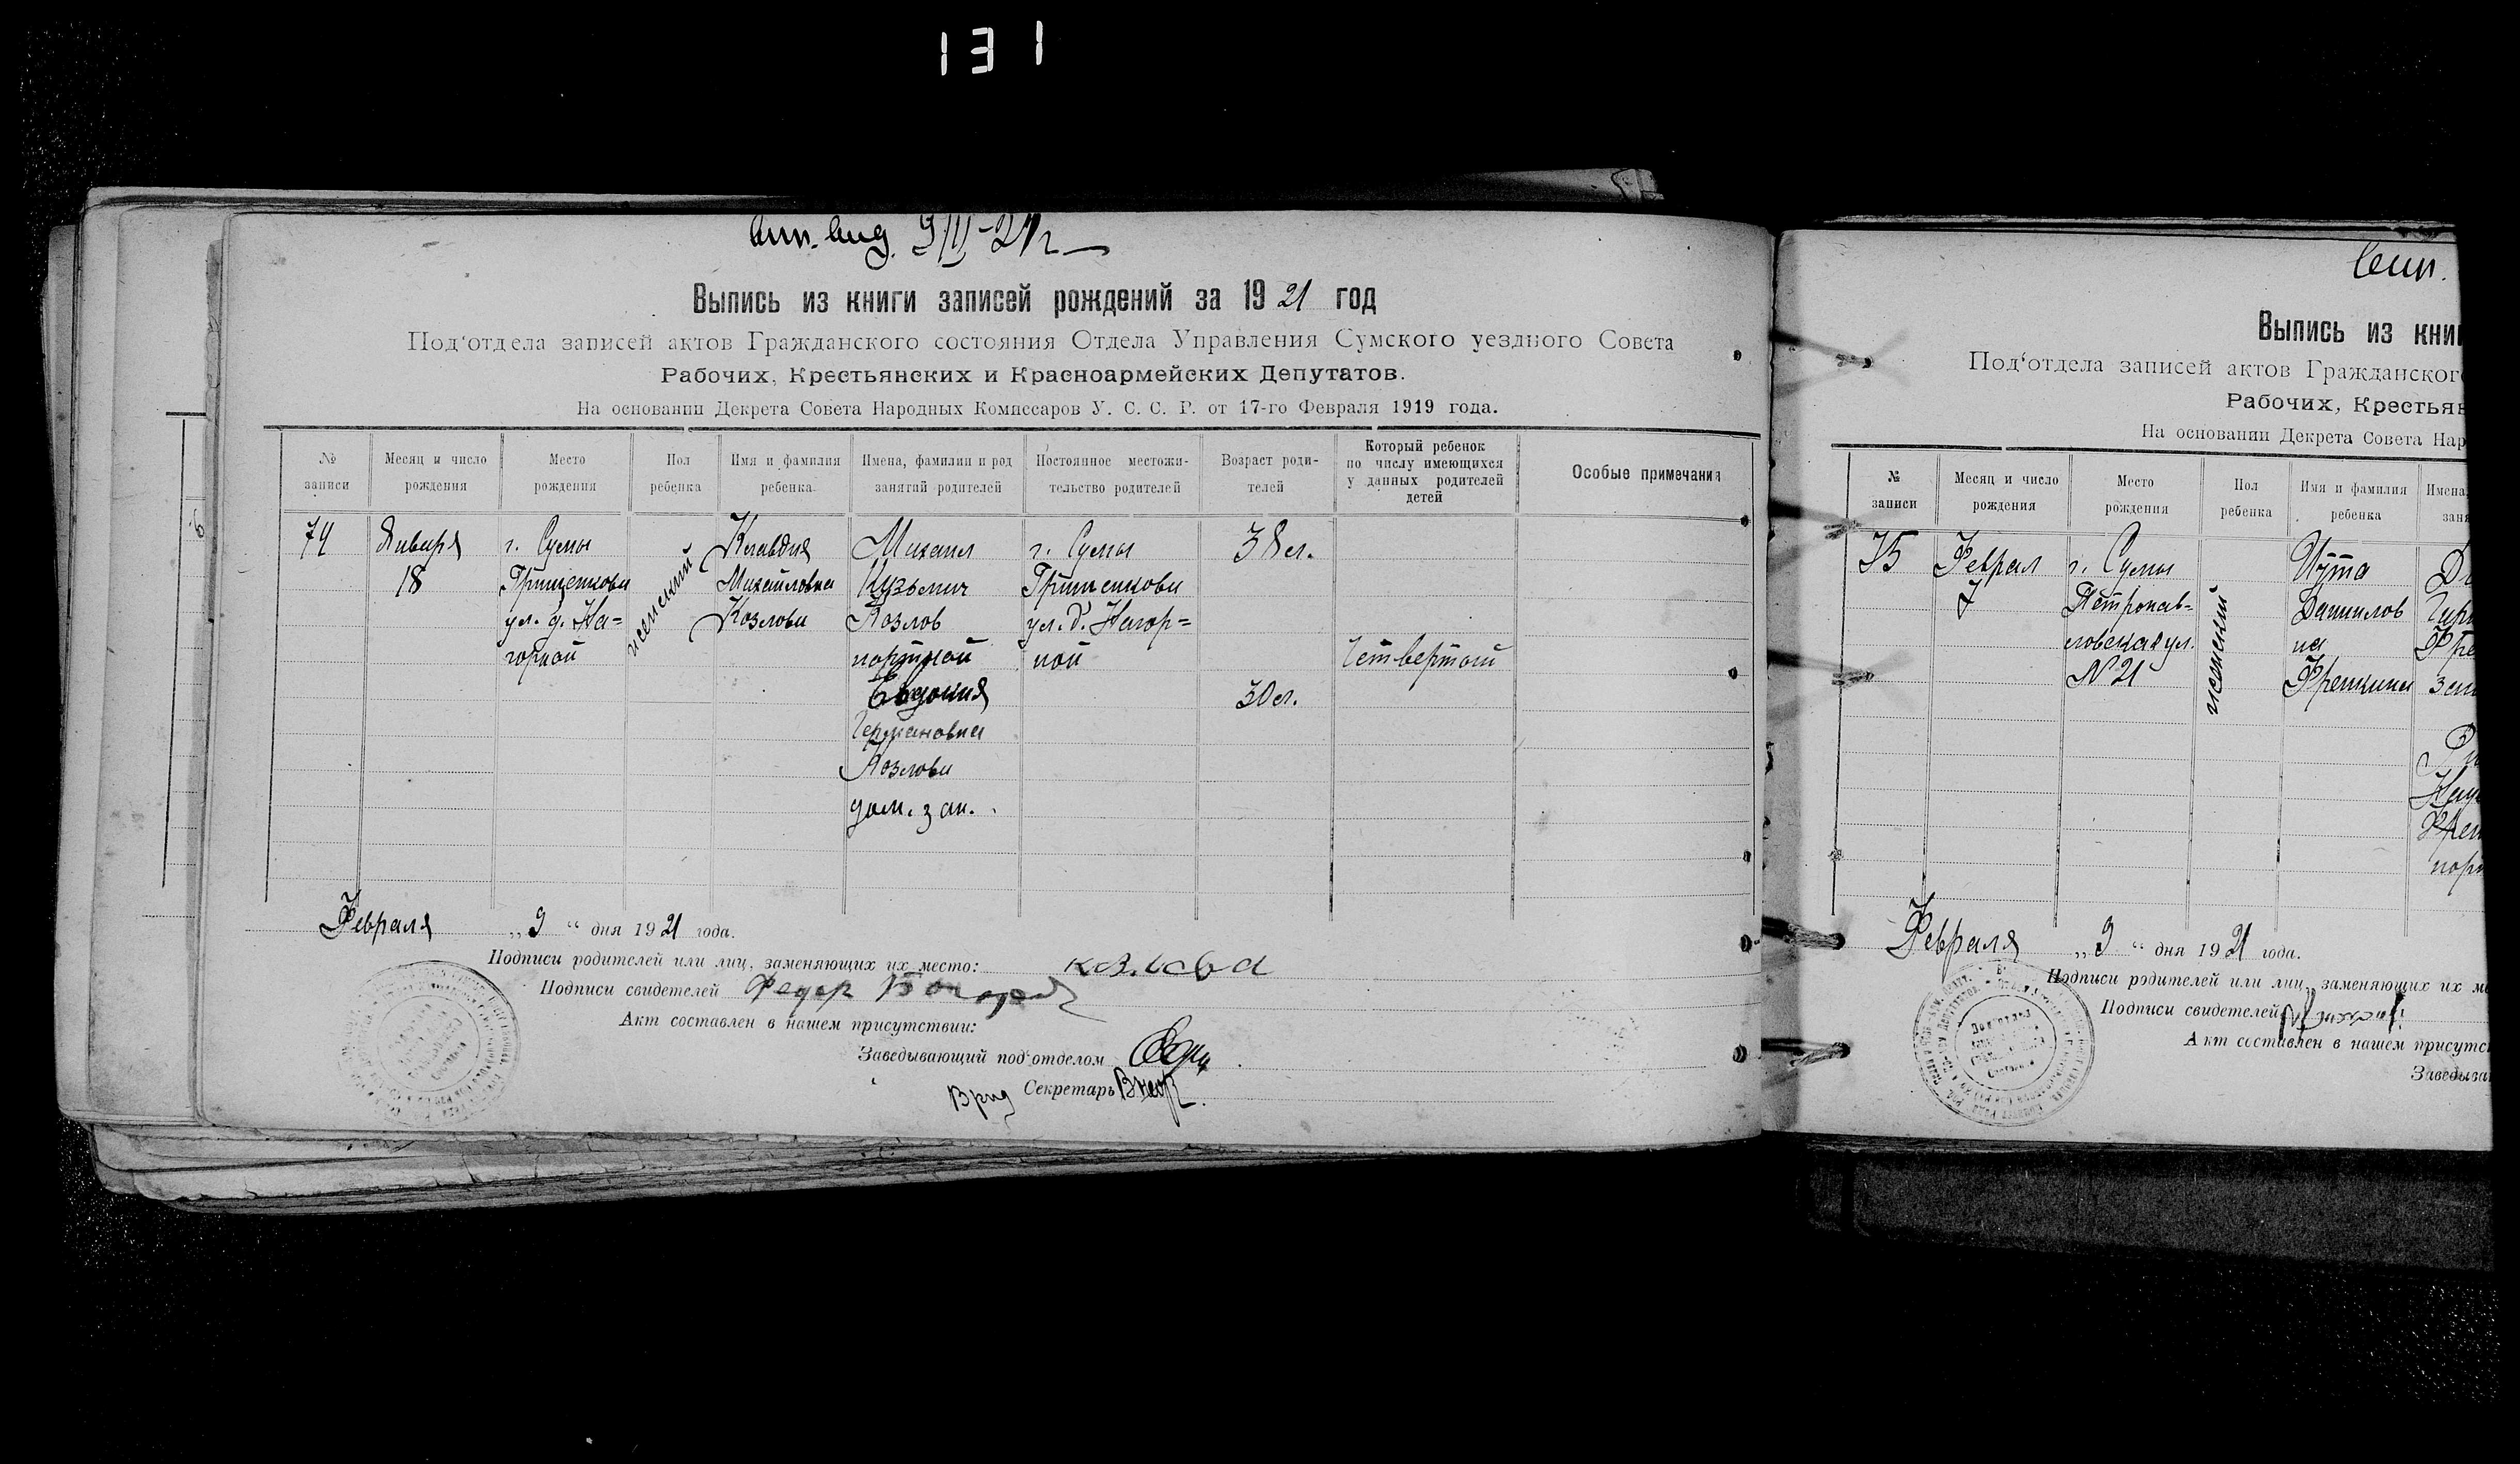 131
вып. выд. 9/II-21 г
Выпись из книги записей рождений за 1921 год
Под'отдела записей актов Гражданского состояния Отдела Управления Сумского уездного Совета
Рабочих, Крестьянских и Красноармейских Депутатов.
На основании Декрета Совета Народных Комиссаров У. С. С. Р. от 17-го Февраля 1919 года.
№ записи
Месяц и число рождения
Место рождения
Пол ребенка
Имя и фамилия ребенка
Имена, фамилии и род занятий родителей
Постоянное местожительство родителей
Возраст родителей
Который ребенок по числу имеющихся у данных родителей детей
Особые примечания
74
Января
18
г. Сумы
ул. д. На=
горной
женский
Клавдия
Михайловна
Козлова
Михаил
Кузьмич
Козлов
портной
Евдокия
Германовна
Козлова
дом. зан.
г. Сумы
ул. д. Нагор=
ной
38 л.
30 л.
Четвертый
Февраля „9“ дня 1921 года.
Подписи родителей или лиц, заменяющих их место: Козлова
Подписи свидетелей Федор
Акт составлен в нашем присутствии:
Заведывающий под'отделом
Врид Секретарь
Выпись из кни
Под'отдела записей актов Гражданског
Рабочих, Крестьян
На основании Декрета Совета Нар
№ записи
Месяц и число рождения
Место рождения
Пол ребенка
Имя и фамилия ребенка
Имена,
заня
75
Феврал
7
г. Сумы
Петропав-
ловская ул.
№ 21
женский
Данилов
на
Френкина
Февраля „9“ дня 1921 года.
Подписи родителей или лиц, заменяющих их ме
Подписи свидетелей
Акт составлен в нашем присутс
Заведыва